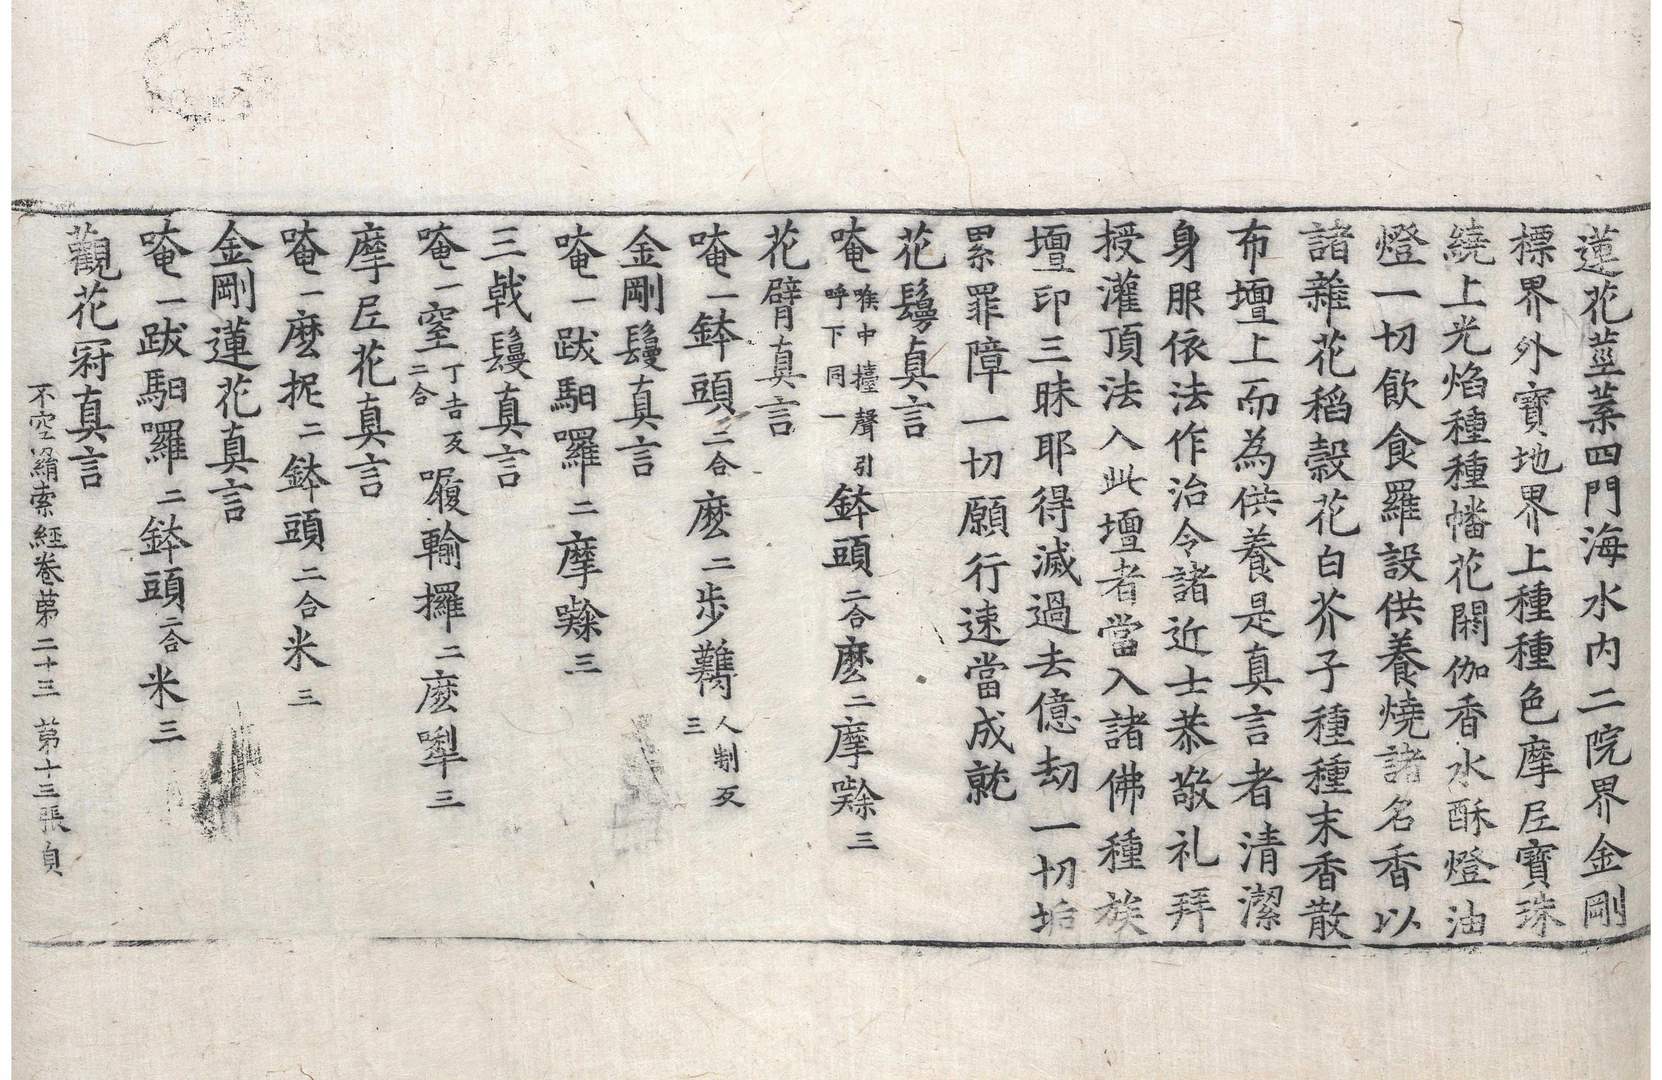 蓮花莖葉四門海水内二院界金剛
標界外寶地界上種種色摩尼寶珠
繞上光焰種種幡花閼伽香水酥燈油
燈一切飲食羅設供養燒諸名香以
諸雜花稻穀花白芥子種種末香散
布壇上而為供養是真言者清潔
身服依法作治令諸近士恭敬礼拜
授灌頂法入此壇者當入諸佛種族
壇印三昧耶得滅過去億劫一切垢
累罪障一切願行速當成就
花鬘真言
唵喉中擡聲引呼下同一鉢頭二合麽二摩㘑三
花臂真言
唵一鉢頭二合麽二步鷨人制反三
金剛鬘真言
唵一跋馹囉二摩㘑三
三戟鬘真言
唵一窒丁吉反二合㘑輸攞二麽犁三
摩尼花真言
唵一麽抳二鉢頭二合米三
金剛蓮花真言
唵一跋馹囉二鉢頭二合米三
觀花冠真言
不空羂索經卷苐二十三 苐十三張 貞